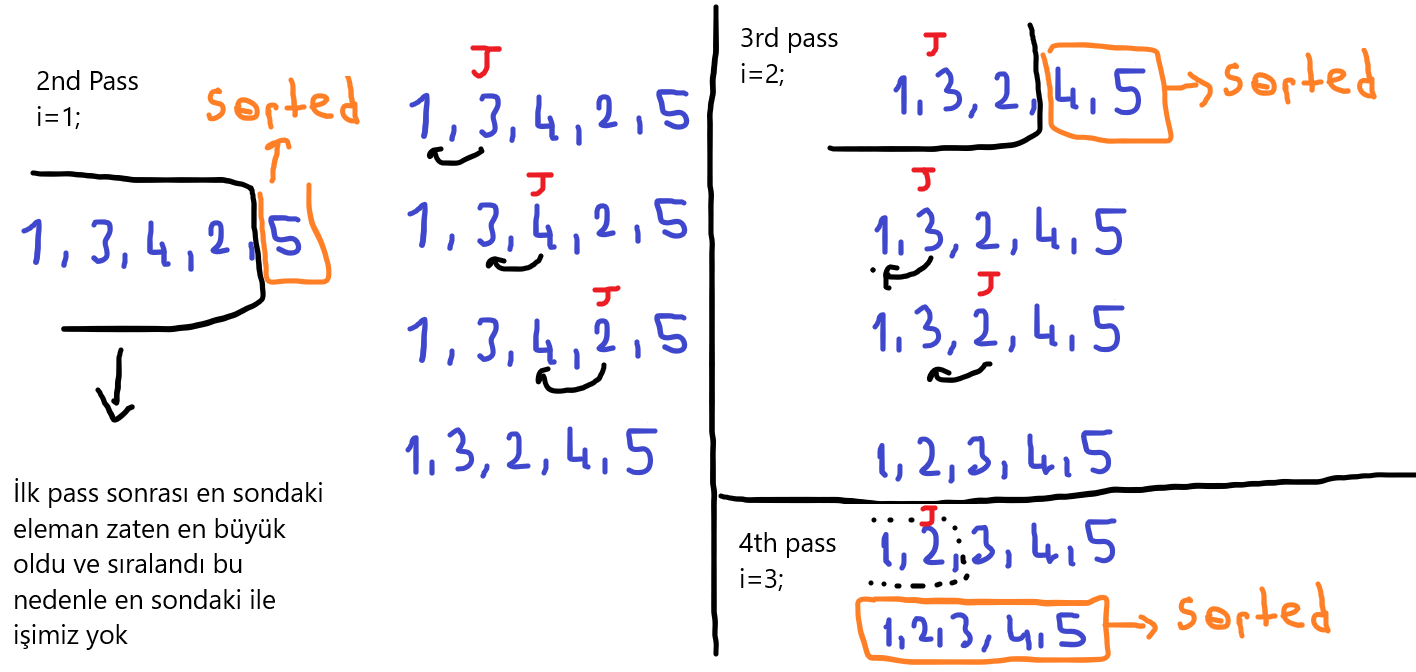 2nd Pass
i=1;
sorted
1, 3, 4, 2, 5
İlk pass sonrası en sondaki
eleman zaten en büyük
oldu ve sıralandı bu
nedenle en sondaki ile
işimiz yok
J
1, 3, 4, 2, 5
J
1, 3, 4, 2, 5
J
1, 3, 4, 2, 5
1, 3, 2, 4, 5
3rd pass
i=2;
J
1, 3, 2, 4, 5
sorted
J
1, 3, 2, 4, 5
J
1, 3, 2, 4, 5
1, 2, 3, 4, 5
4th pass
i=3;
J
1, 2, 3, 4, 5
1, 2, 3, 4, 5
sorted